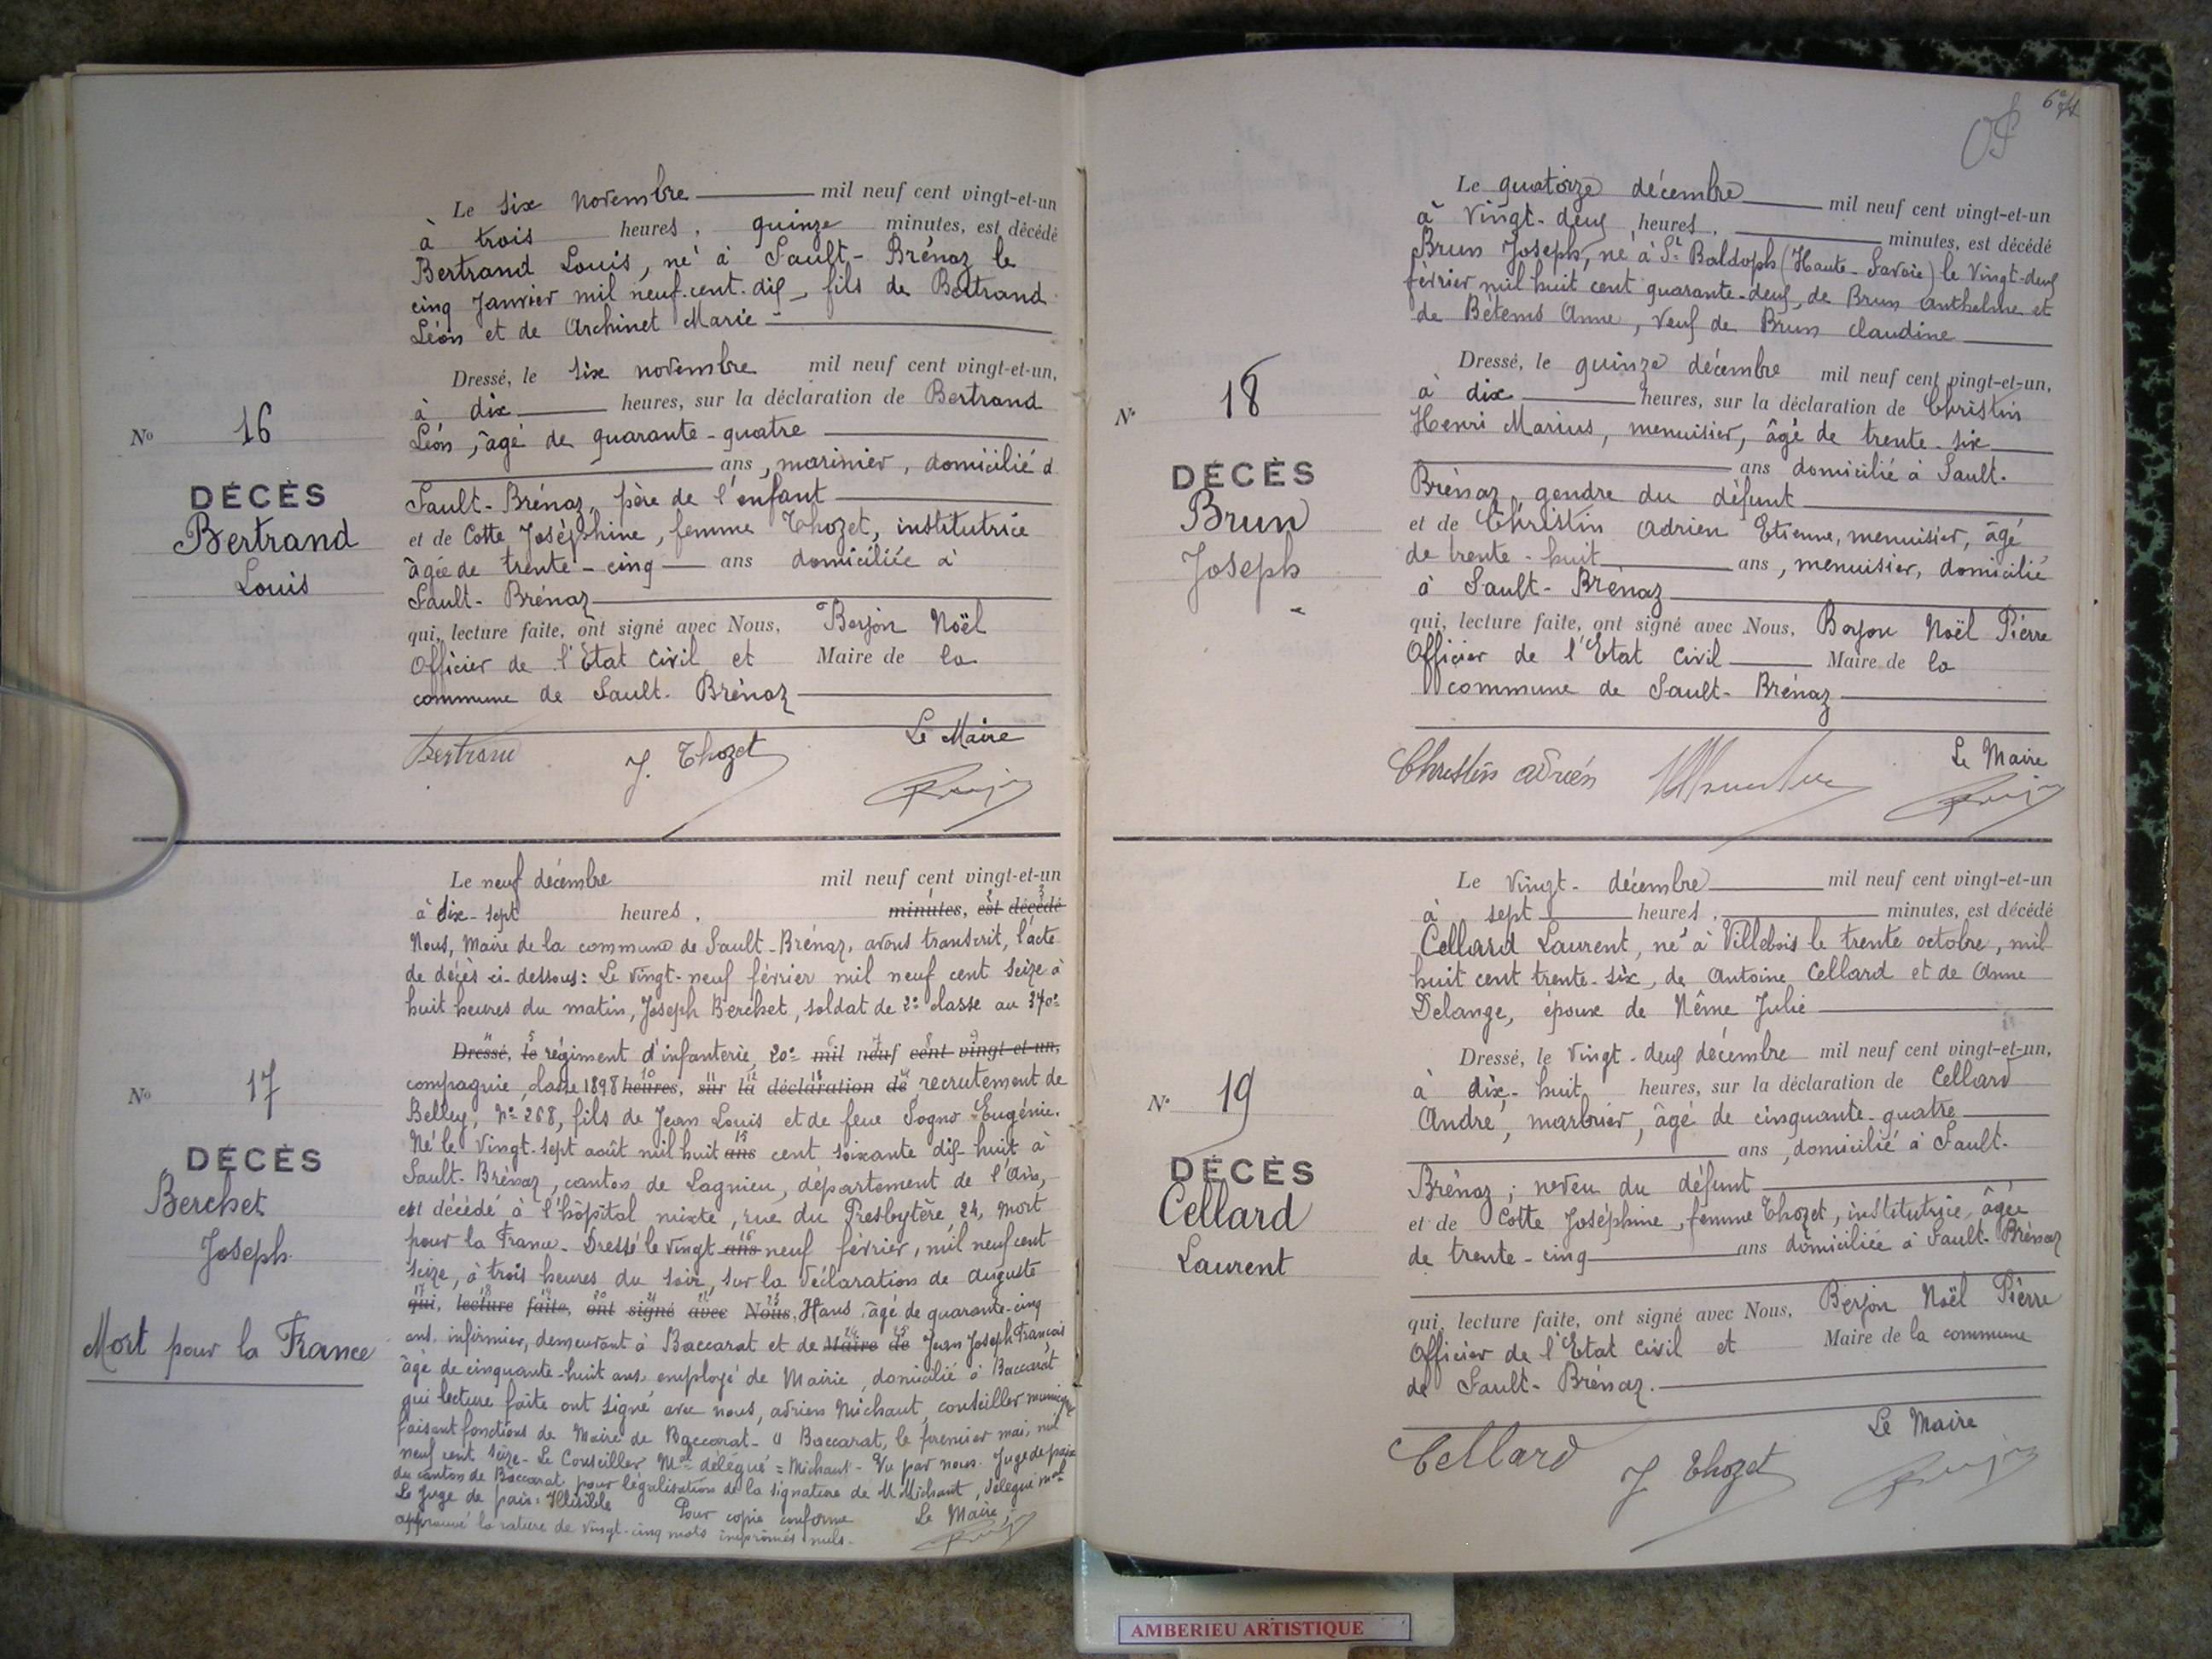 Le six novembre mil neuf cent vingt-et-un
à trois heures, quinze minutes, est décédé
Bertrand Louis, né à Sault-Brénaz le
cinq Janvier mil neuf-cent-dix, fils de Bertrand
Léon et de Archinet Marie
Dressé, le six novembre mil neuf cent vingt-et-un,
à dix heures, sur la déclaration de Bertrand
Léon, âgé de quarante-quatre
ans, marinier, domicilié à
Sault-Brénaz, père de l'enfant
et de Cotte Joséphine, femme Thozet, institutrice
âgée de trente-cinq ans domiciliée à
Sault-Brénaz
qui, lecture faite, ont signé avec Nous, Berjon Noël
Officier de l'Etat Civil et Maire de la
commune de Sault-Brénaz
Bertrand J. Thozet Le Maire
No 16
DÉCÈS
Bertrand
Louis
Le neuf décembre mil neuf cent vingt-et-un
à dix-sept heures, minutes, est décédé
Nous, Maire de la commune de Sault-Brénaz, avons transcrit, l'acte
de décès ci-dessous: Le vingt-neuf février mil neuf cent seize à
huit heures du matin, Joseph Berchet, soldat de 2e classe au 340e
Dressé, le régiment d'infanterie, 20e mil neuf cent vingt-et-un,
compagnie, classe 1898 heures, sur la déclaration de recrutement de
Belley, No 268, fils de Jean Louis et de feue Sogno Eugénie.
Né le vingt-sept août mil huit ans cent soixante dix-huit à
Sault-Brénaz, canton de Lagnieu, département de l'Ain,
est décédé à l'hôpital mixte, rue du Presbytère, 24, mort
pour la France. Dressé le vingt ans neuf février, mil neuf cent
seize, à trois heures du soir, sur la déclaration de Auguste
qui, lecture faite, ont signé avec Nous, Haus, âgé de quarante-cinq
ans, infirmier, demeurant à Baccarat et de Maire de Jean Joseph François
âgé de cinquante-huit ans, employé de Mairie, domicilié à Baccarat
qui lecture faite ont signé avec nous, Adrien Michaut, conseiller municipal
faisant fonctions de Maire de Baccarat - A Baccarat, le premier mai, mil
neuf cent seize - Le Conseiller Mal délégué = Michaut - Vu par nous Juge de paix
du canton de Baccarat, pour légalisation de la signature de M Michaut, délégué mal
Le Juge de paix: Illisible Pour copie conforme Le Maire,
approuvé la rature de vingt-cinq mots imprimés nuls.
No 17
DÉCÈS
Berchet
Joseph
Mort pour la France
Le quatorze décembre mil neuf cent vingt-et-un
à vingt-deux heures, minutes, est décédé
Brun Joseph, né à St Baldoph (Haute-Savoie) le vingt-deux
février mil huit cent quarante-deux, de Brun Anthelme et
de Bétems Anne, veuf de Brun Claudine
Dressé, le quinze décembre mil neuf cent vingt-et-un,
à dix heures, sur la déclaration de Christin
Henri Marius, menuisier, âgé de trente-six
ans domicilié à Sault-
Brénaz, gendre du défunt
et de Christin Adrien Etienne, menuisier, âgé
de trente-huit ans, menuisier, domicilié
à Sault-Brénaz
qui, lecture faite, ont signé avec Nous, Berjon Noël Pierre
Officier de l'Etat Civil Maire de la
commune de Sault-Brénaz
Christin Adrien Le Maire
No 18
DÉCÈS
Brun
Joseph
Le vingt-décembre mil neuf cent vingt-et-un
à sept heures, minutes, est décédé
Cellard Laurent, né à Villebois le trente octobre, mil
huit cent trente-six, de Antoine Cellard et de Anne
Delange, époux de Nême Julie
Dressé, le vingt-deux décembre mil neuf cent vingt-et-un,
à dix-huit heures, sur la déclaration de Cellard
André, marbrier, âgé de cinquante-quatre
ans, domicilié à Sault-
Brénaz; neveu du défunt
et de Cotte Joséphine, femme Thozet, institutrice, âgée
de trente-cinq ans domiciliée à Sault-Brénaz
qui, lecture faite, ont signé avec Nous, Berjon Noël Pierre
Officier de l'Etat Civil et Maire de la commune
de Sault-Brénaz.
Cellard J Thozet Le Maire
No 19
DÉCÈS
Cellard
Laurent
AMBERIEU ARTISTIQUE